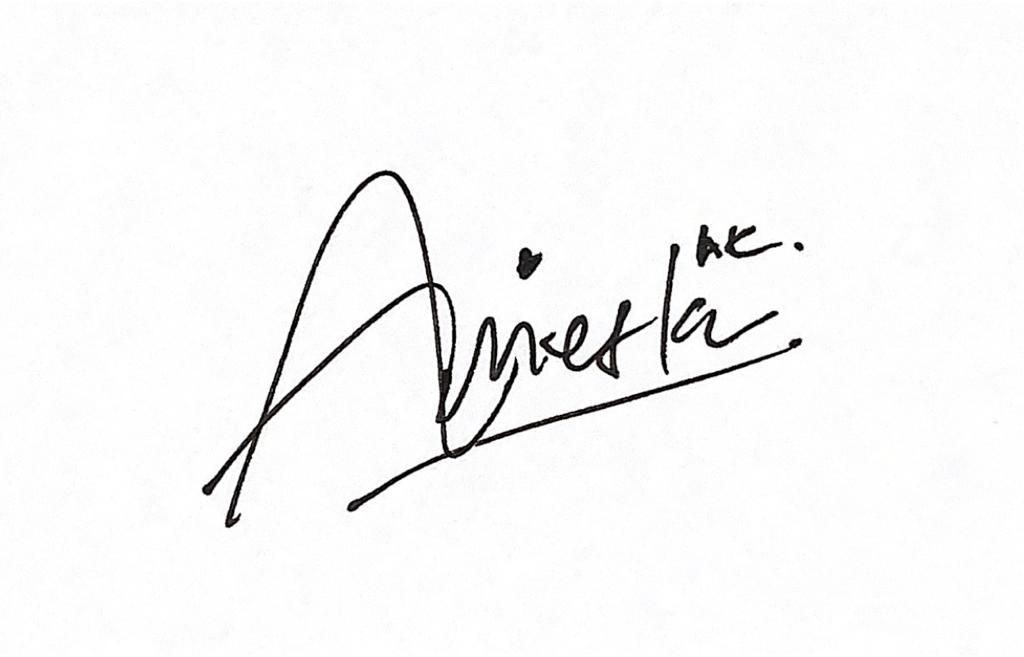 Anieska AK.